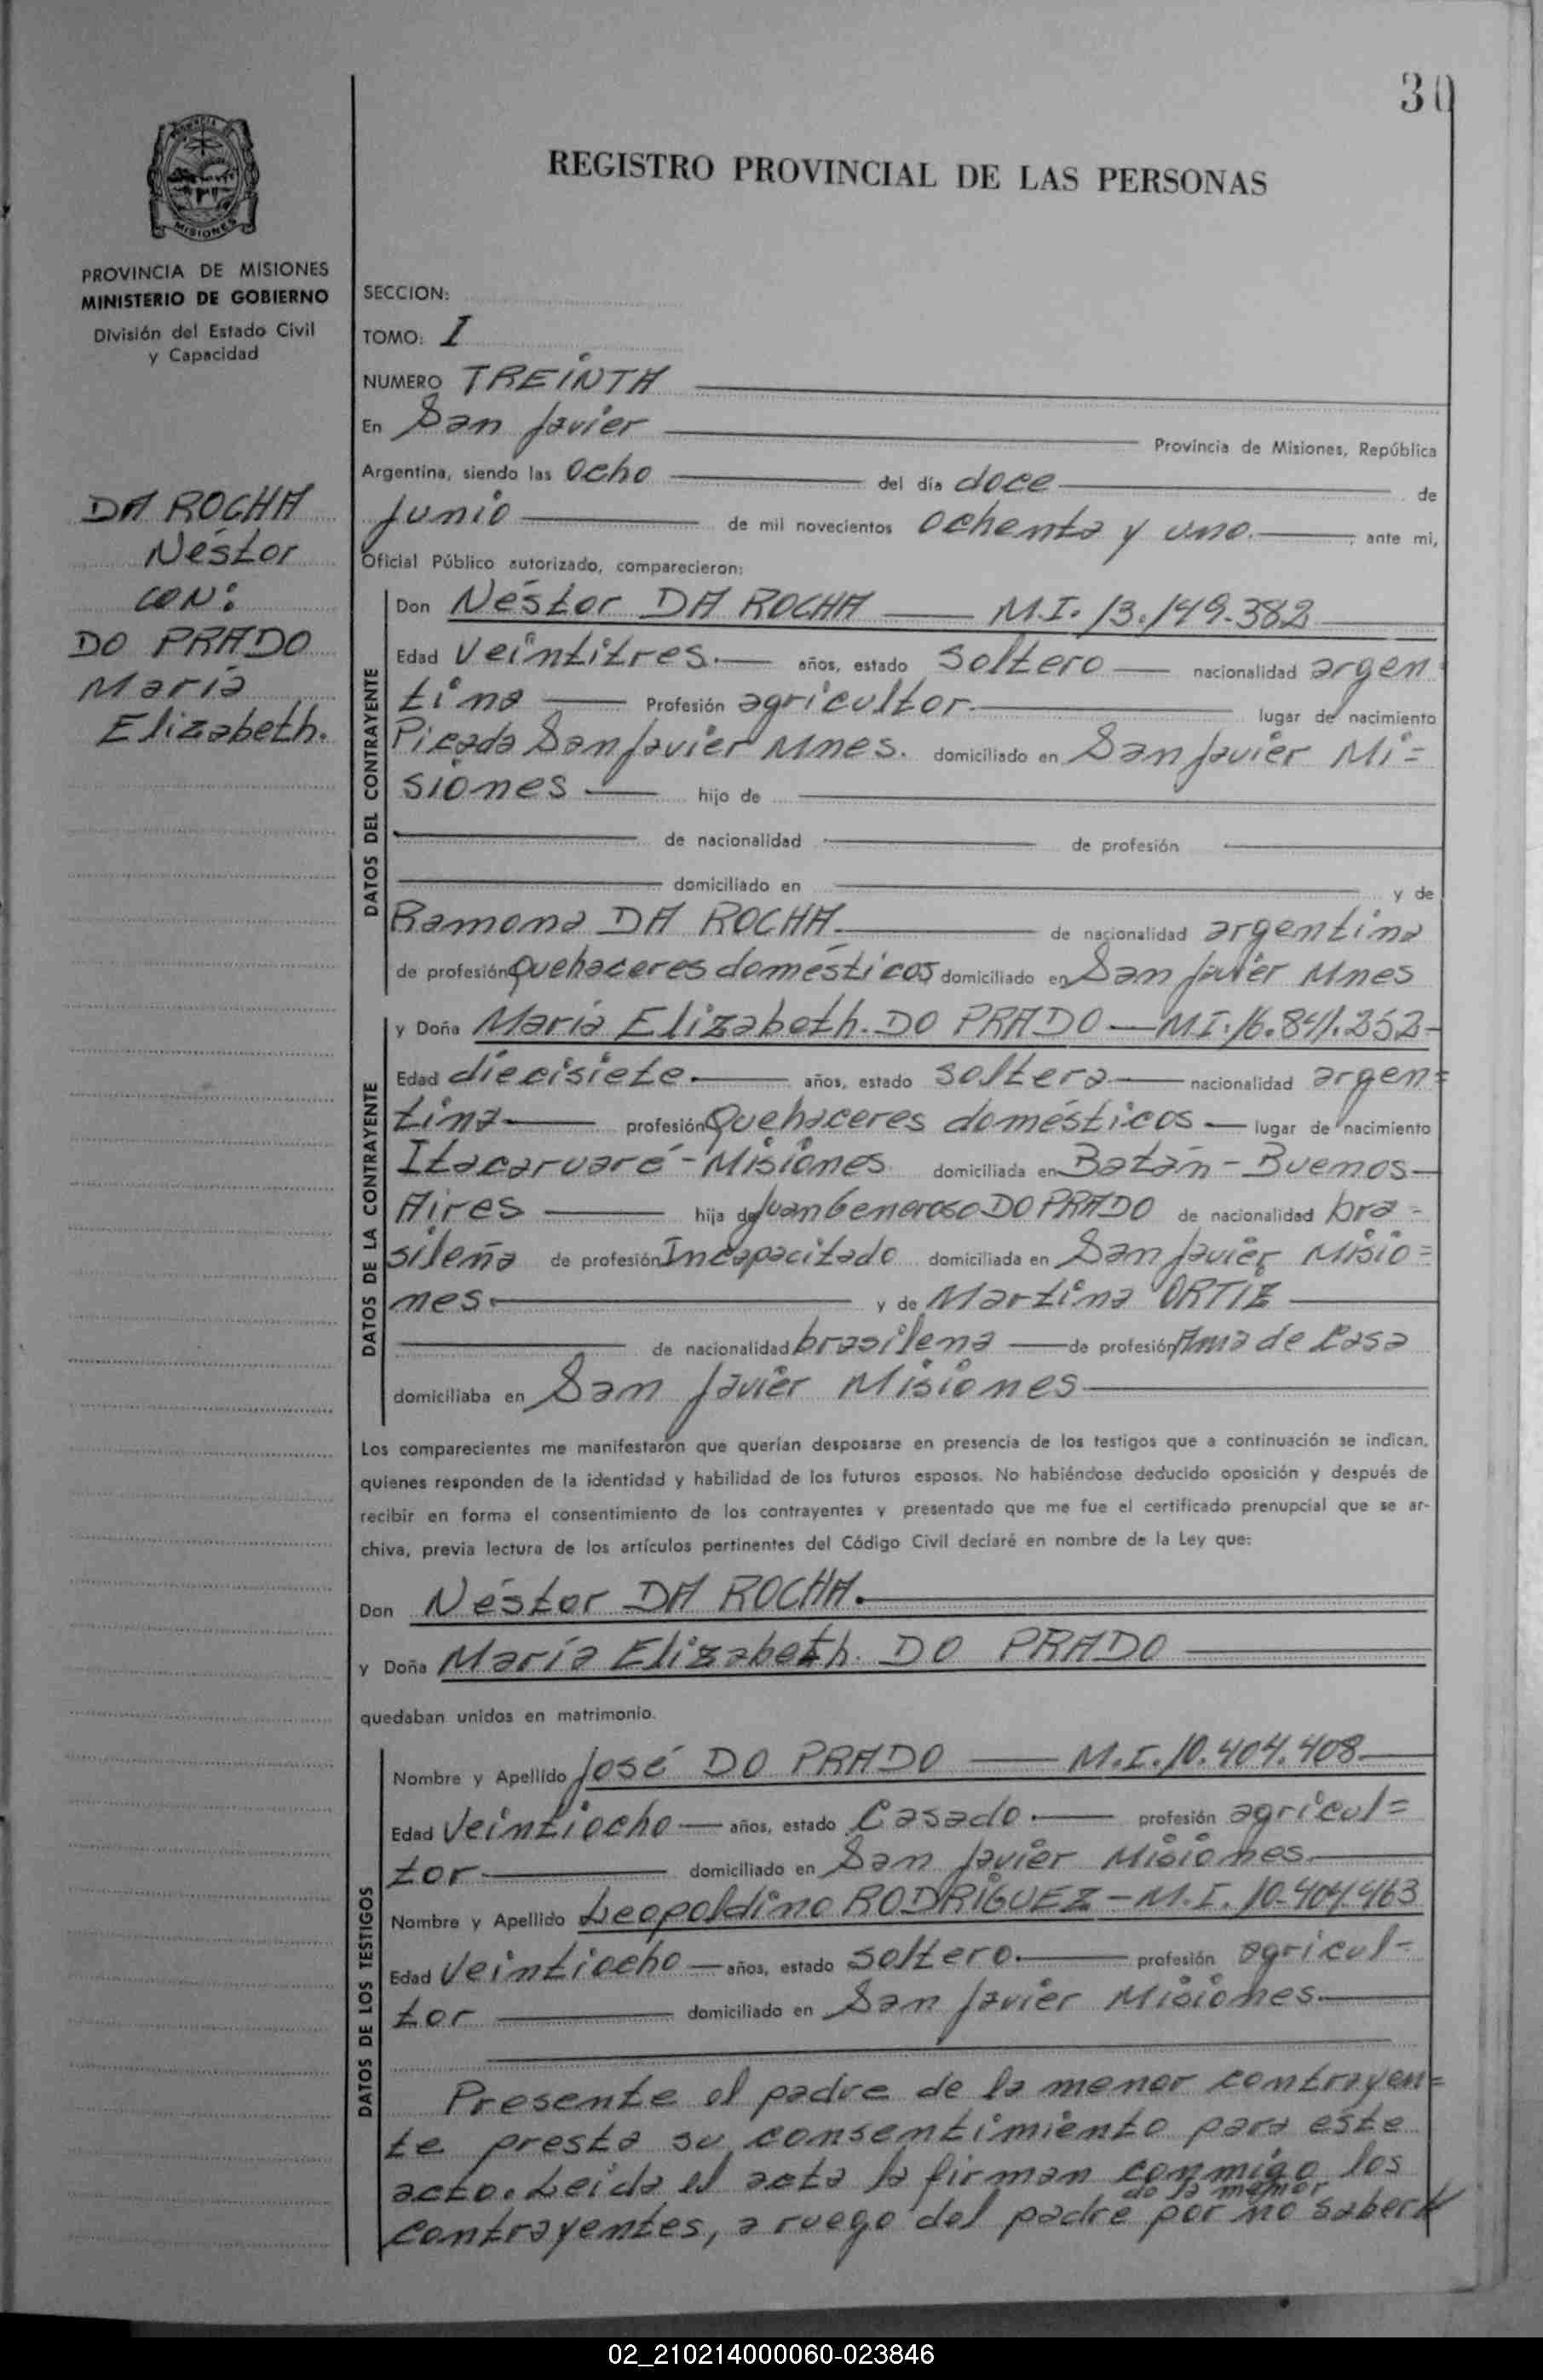 30
REGISTRO PROVINCIAL DE LAS PERSONAS
PROVINCIA DE MISIONES
MINISTERIO DE GOBIERNO
División del Estado Civil
y Capacidad
DA ROCHA
Néstor
CON:
DO PRADO
María
Elizabeth.
SECCION:
TOMO: I
NUMERO TREINTA
En San Javier Provincia de Misiones, República
Argentina, siendo las Ocho del día doce de
Junio de mil novecientos Ochenta y uno. ; ante mi,
Oficial Público autorizado, comparecieron:
DATOS DEL CONTRAYENTE
Don Néstor DA ROCHA — M.I. 13.149.382
Edad Veintitres. — años, estado Soltero — nacionalidad argen
tina — Profesión agricultor. lugar de nacimiento
Picada San Javier Mnes. domiciliado en San Javier Mi=
siones — hijo de
de nacionalidad de profesión
domiciliado en y de
Ramona DA ROCHA. de nacionalidad argentina
de profesión Quehaceres domésticos domiciliado en San Javier Mnes
DATOS DE LA CONTRAYENTE
y Doña María Elizabeth. DO PRADO — M.I. 16.841.252-
Edad diecisiete. — años, estado Soltera — nacionalidad argen=
tina — profesión Quehaceres domésticos — lugar de nacimiento
Itacaruaré - Misiones domiciliada en Batán - Buenos
Aires — hija de Juan Generoso DO PRADO de nacionalidad bra=
sileña de profesión Incapacitado domiciliada en San Javier Misio=
nes. y de Martina ORTIZ
de nacionalidad brasilena — de profesión Ama de Casa
domiciliaba en San Javier Misiones
Los comparecientes me manifestaron que querían desposarse en presencia de los testigos que a continuación se indican,
quienes responden de la identidad y habilidad de los futuros esposos. No habiéndose deducido oposición y después de
recibir en forma el consentimiento de los contrayentes y presentado que me fue el certificado prenupcial que se ar-
chiva, previa lectura de los artículos pertinentes del Código Civil declaré en nombre de la Ley que:
Don Néstor DA ROCHA.
y Doña María Elizabeth. DO PRADO
quedaban unidos en matrimonio.
DATOS DE LOS TESTIGOS
Nombre y Apellido José DO PRADO — M.I. 10.404.408
Edad Veintiocho — años, estado Casado. — profesión agricul=
tor domiciliado en San Javier Misiones
Nombre y Apellido Leopoldino RODRÍGUEZ - M.I. 10.404.463
Edad Veintiocho — años, estado Soltero. — profesión agricul-
tor domiciliado en San Javier Misiones.
Presente el padre de la menor contrayen=
te presta su consentimiento para este
acto. Leida el acta la firman conmigo los
de la menor
contrayentes, a ruego del padre por no saber
02_210214000060-023846